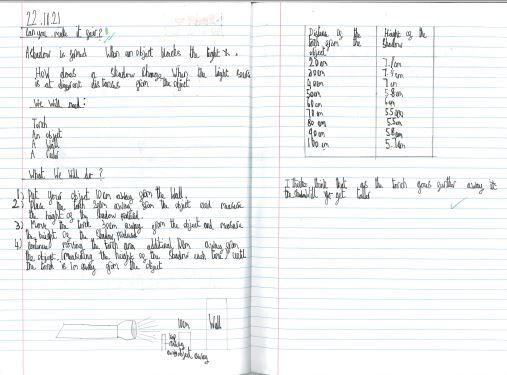 22.11.21
Can you make it grow?
A shadow is formed When an object blocks the light
How does a Shadow Change When the light
is at different distances from the object
We Will need:
Torch
An object
A Wall
A
What We Will do?
1) Put your object 10cm away from the Wall.
2) Place the torch 20cm away from the object and measure
the height of the Shadow
3) Move the torch 30cm away from the object and measure
the height of the Shadow
4) Continue moving the torch an additional 10cm away from
the object (measuring the height of the Shadow each time) until
the torch is 1m away from the object
10cm
Wall
object away
Distance of the
torch from the
object
Height of the
Shadow
20cm
30cm
40cm
7cm
50cm
5.8cm
60cm
70cm
5.5cm
80cm
5.5cm
90cm
100cm
I think that as the torch goes further away the
get taller